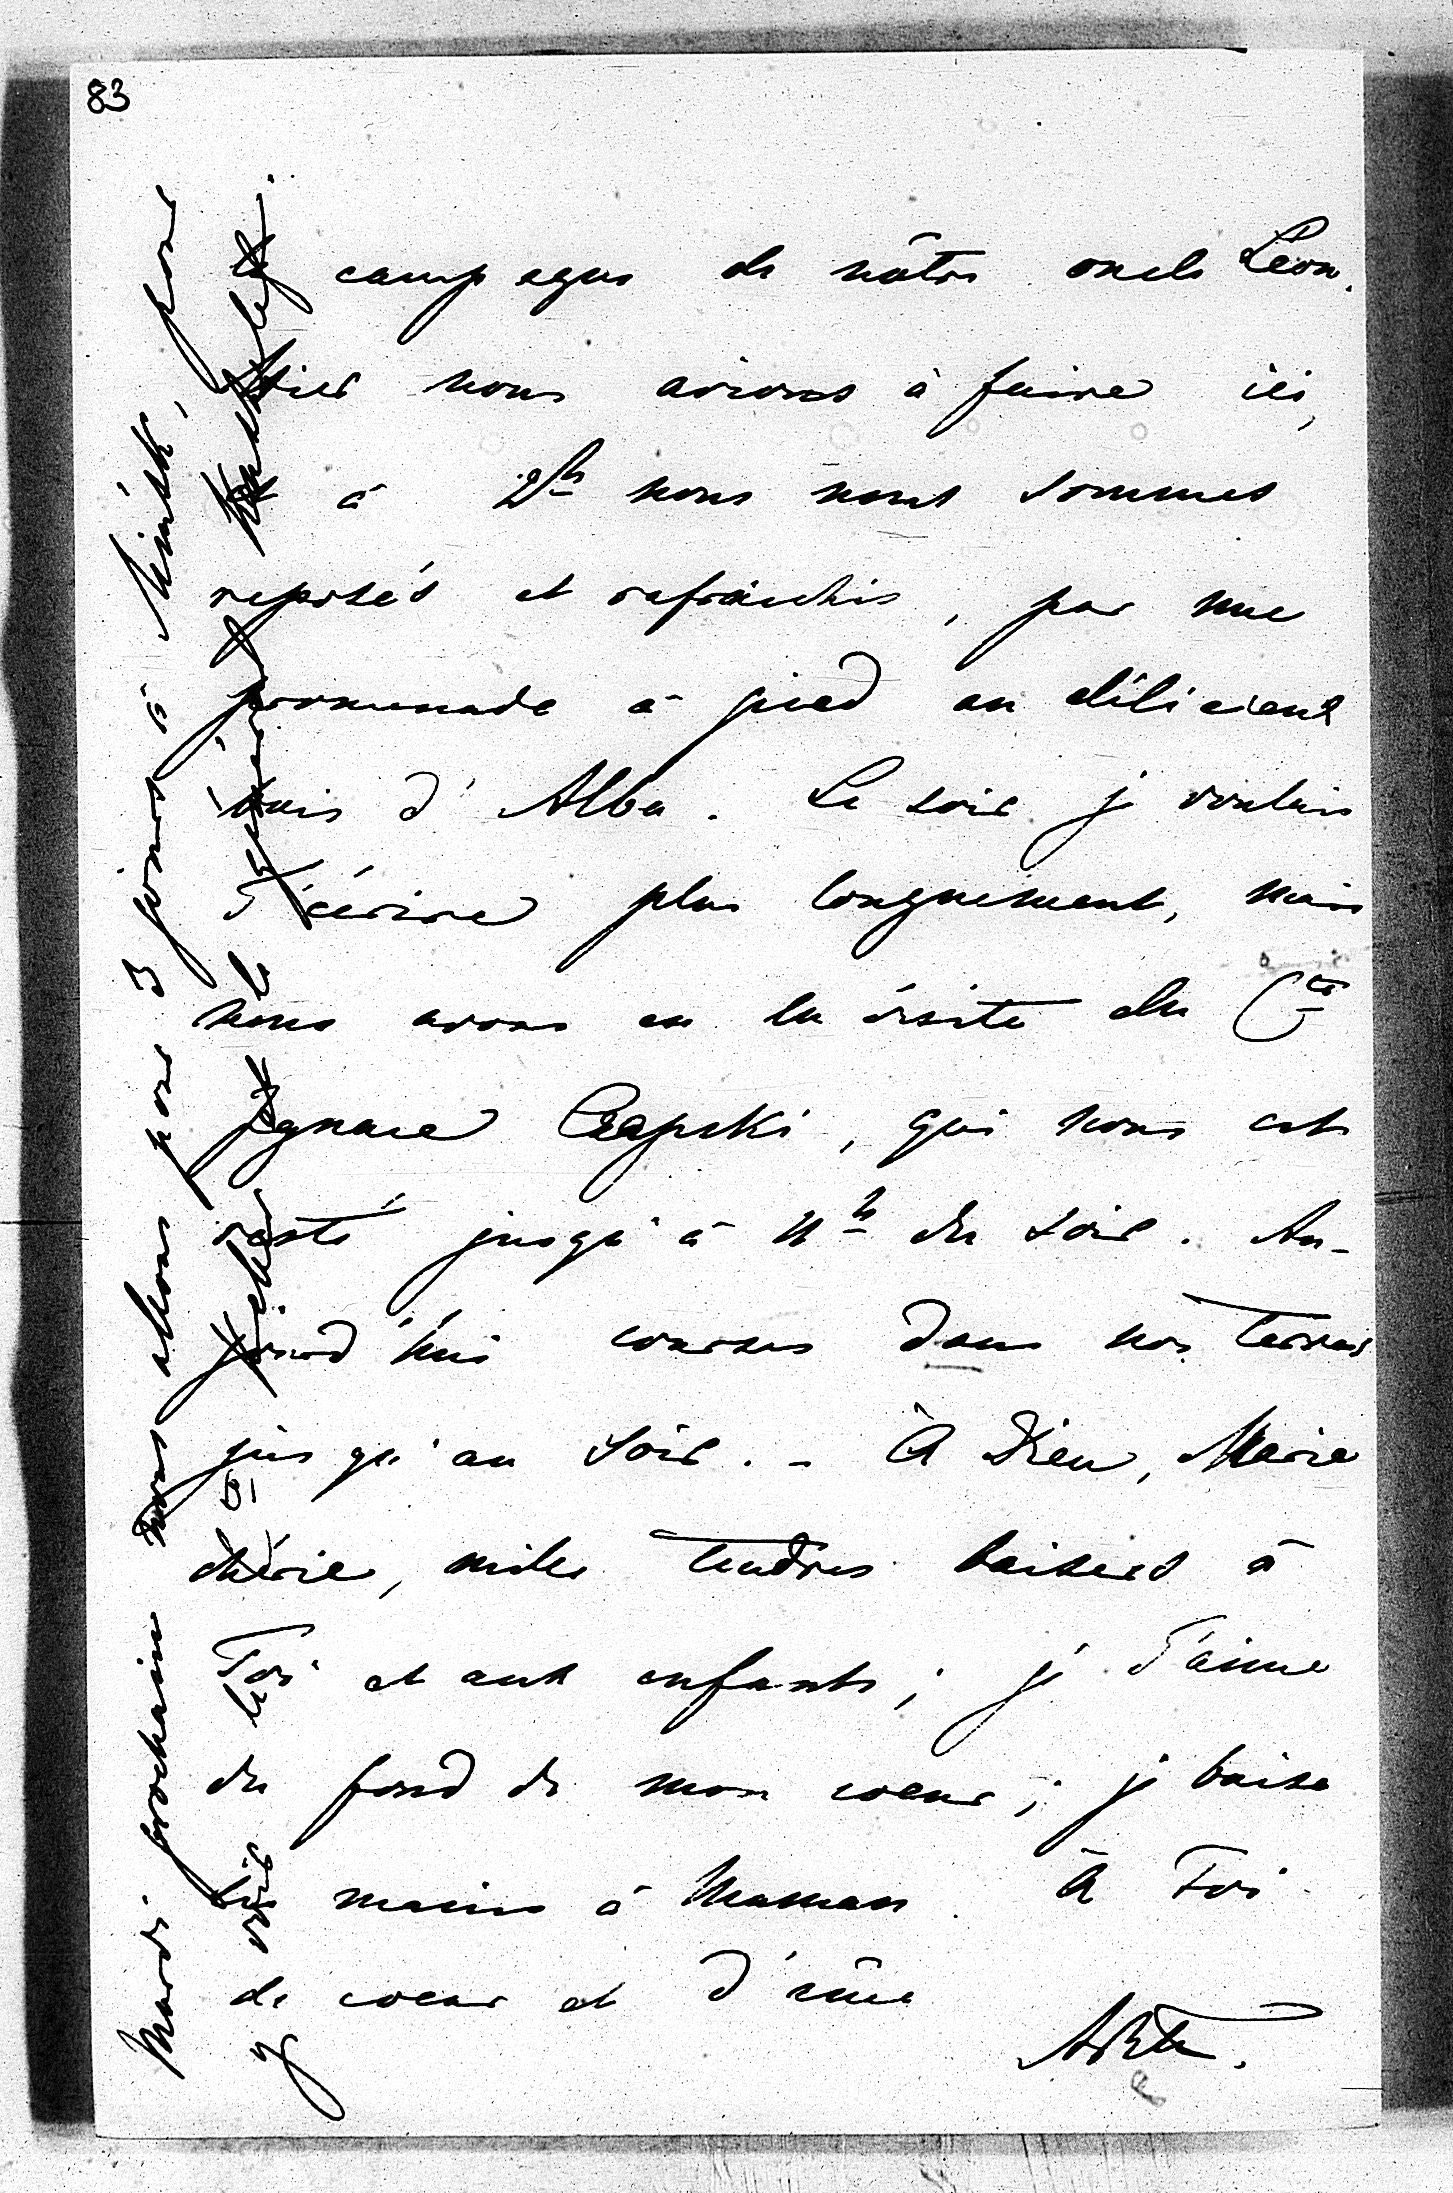 83
campagne de nôtre oncle Léon.
Hier nous avions à faire ici,
et à 2h nous nous sommes
reposés et rafraichis, par une
promenade à pied au délicieux
bois d'Alba. Le soir je voulais
T'écrire plus longuement, mais
nous avons eu la visite du Cte
Ignace Czapski, qui nous est
resté jusqu'à 11h du soir. Au-
jourd'hui courses dans nos terres
jusqu'au soir. - À Dieu, Marie
chérie, mille tendres baisers à
Toi et aux enfants; je T'aime
du fond de mon coeur; je baise
les mains à Maman. À Toi
de coeur et d'âme
Mardi prochain nous allons pour 3 jours à Minsk, pour
y voir le